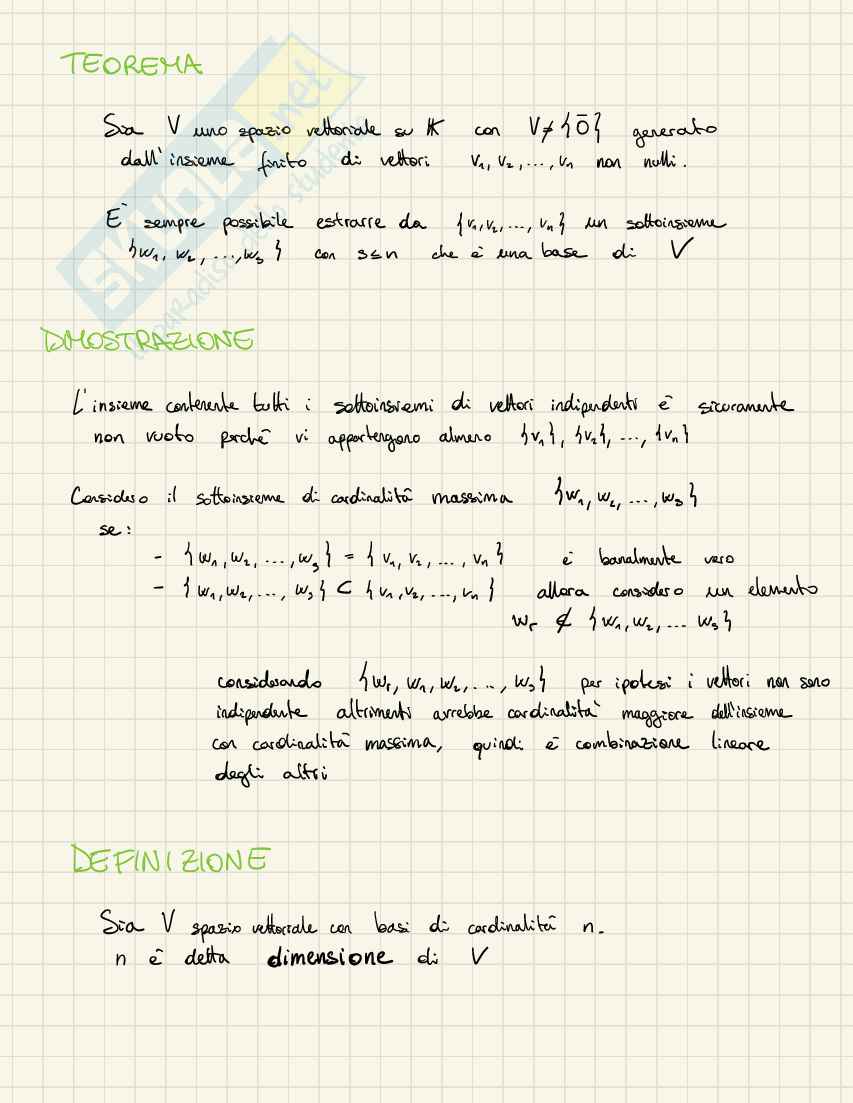 TEOREMA
Sia V uno spazio vettoriale su K con V ≠ {0̄} generato
dall'insieme finito di vettori v₁, v₂, ..., vₙ non nulli.
E' sempre possibile estrarre da {v₁, v₂, ..., vₙ} un sottoinsieme
{w₁, w₂, ..., wₛ} con s ≤ n che è una base di V
DIMOSTRAZIONE
L'insieme contenente tutti i sottoinsiemi di vettori indipendenti è sicuramente
non vuoto perché vi appartengono almeno {v₁}, {v₂}, ..., {vₙ}
Considero il sottoinsieme di cardinalità massima {w₁, w₂, ..., wₛ}
se:
- {w₁, w₂, ..., wₛ} = {v₁, v₂, ..., vₙ} è banalmente vero
- {w₁, w₂, ..., wₛ} ⊂ {v₁, v₂, ..., vₙ} allora considero un elemento
wᵣ ∉ {w₁, w₂, ... wₛ}
considerando {wᵣ, w₁, w₂, ..., wₛ} per ipotesi i vettori non sono
indipendente altrimenti avrebbe cardinalità maggiore dell'insieme
con cardinalità massima, quindi è combinazione lineare
degli altri
DEFINIZIONE
Sia V spazio vettoriale con basi di cardinalità n.
n è detta dimensione di V
SKUOLA.net
il paradiso dello studente